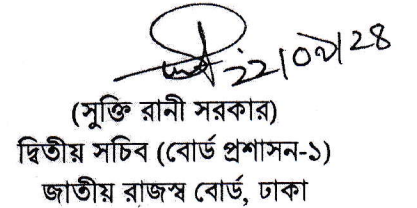 ২২|০৭|২৪
(সুক্তি রানী সরকার)
দ্বিতীয় সচিব (বোর্ড প্রশাসন-১)
জাতীয় রাজস্ব বোর্ড, ঢাকা